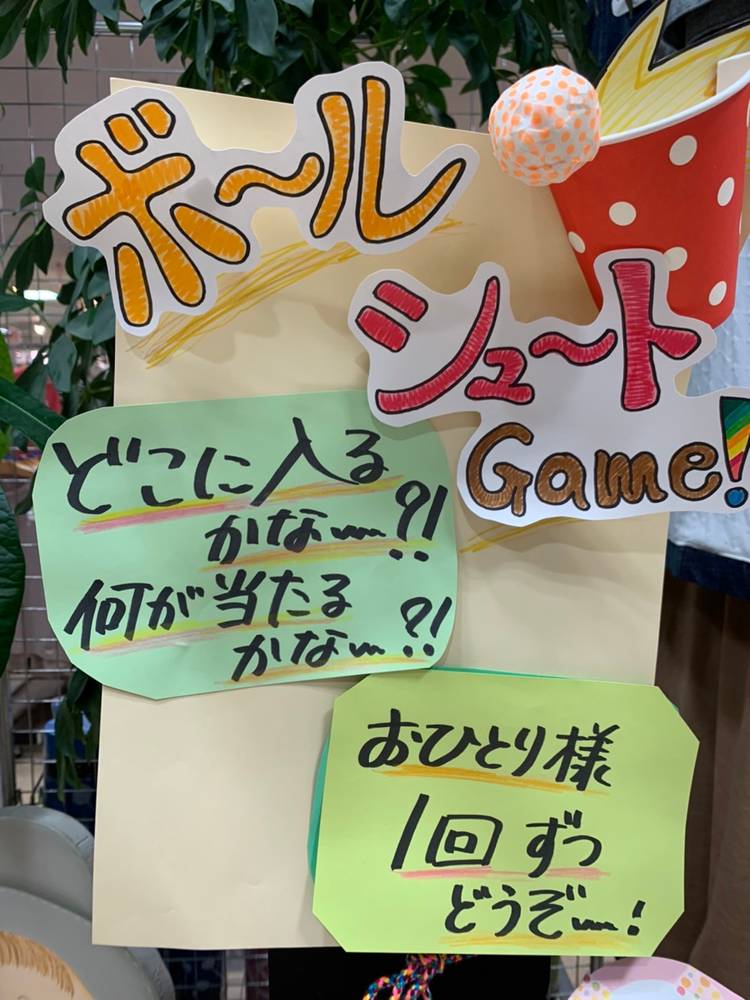 ボール
シュート
Game!
どこに入る
かな〜?!
何が当たる
かな〜?!
おひとり様
1回ずつ
どうぞ〜!